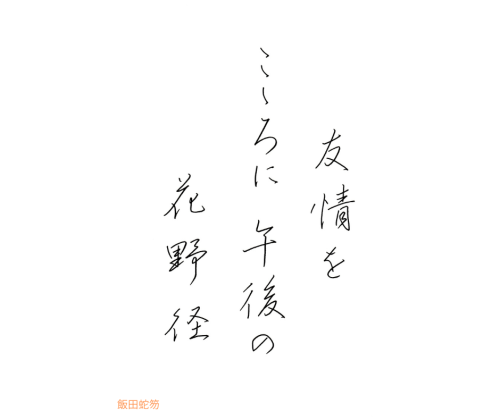 友情を
こゝろに午後の
花野径
飯田蛇笏